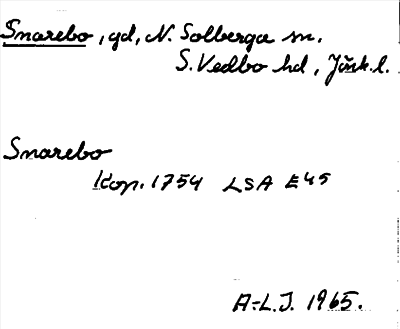 Smarebo, gd, N. Solberga sn.
S. Vedbo hd, Jönk. l.
Smarebo
Kop. 1754 LSA E45
A-L.J. 1965.